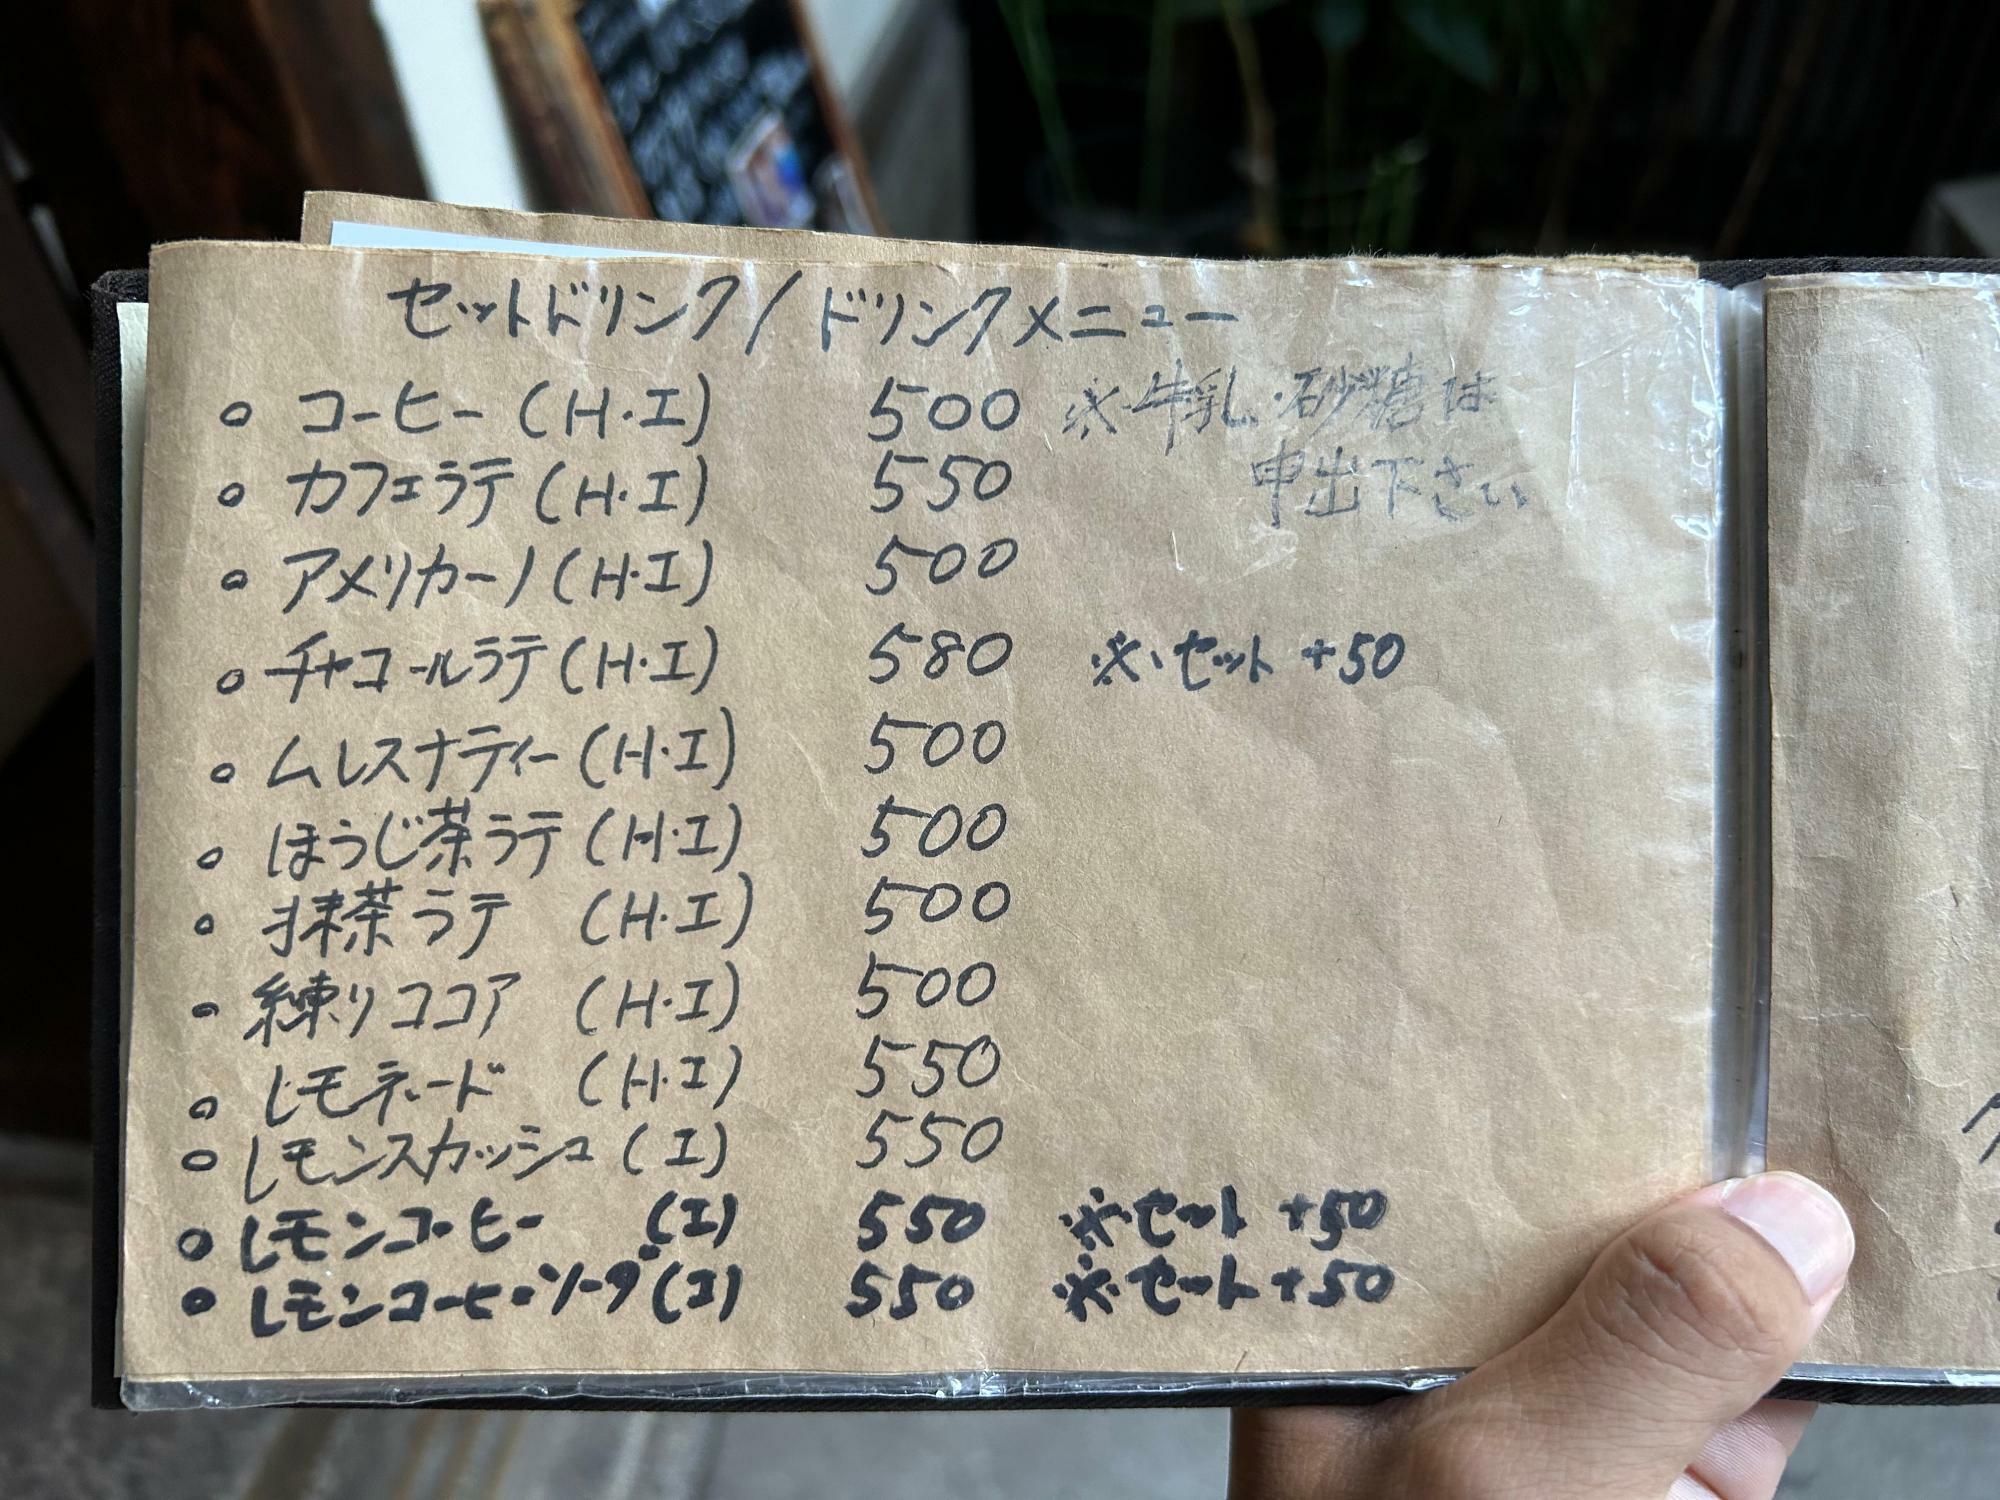 セットドリンク/ドリンクメニュー
○ コーヒー (H・I) 500 ※牛乳・砂糖は
申出下さい
○ カフェラテ (H・I) 550
○ アメリカーノ (H・I) 500
○ チャコールラテ (H・I) 580 ※セット +50
○ ムレスナティー (H・I) 500
○ ほうじ茶ラテ (H・I) 500
○ 抹茶ラテ (H・I) 500
○ 練りココア (H・I) 500
○ レモネード (H・I) 550
○ レモンスカッシュ (I) 550
○ レモンコーヒー (I) 550 ※セット +50
○ レモンコーヒーソーダ (I) 550 ※セット +50